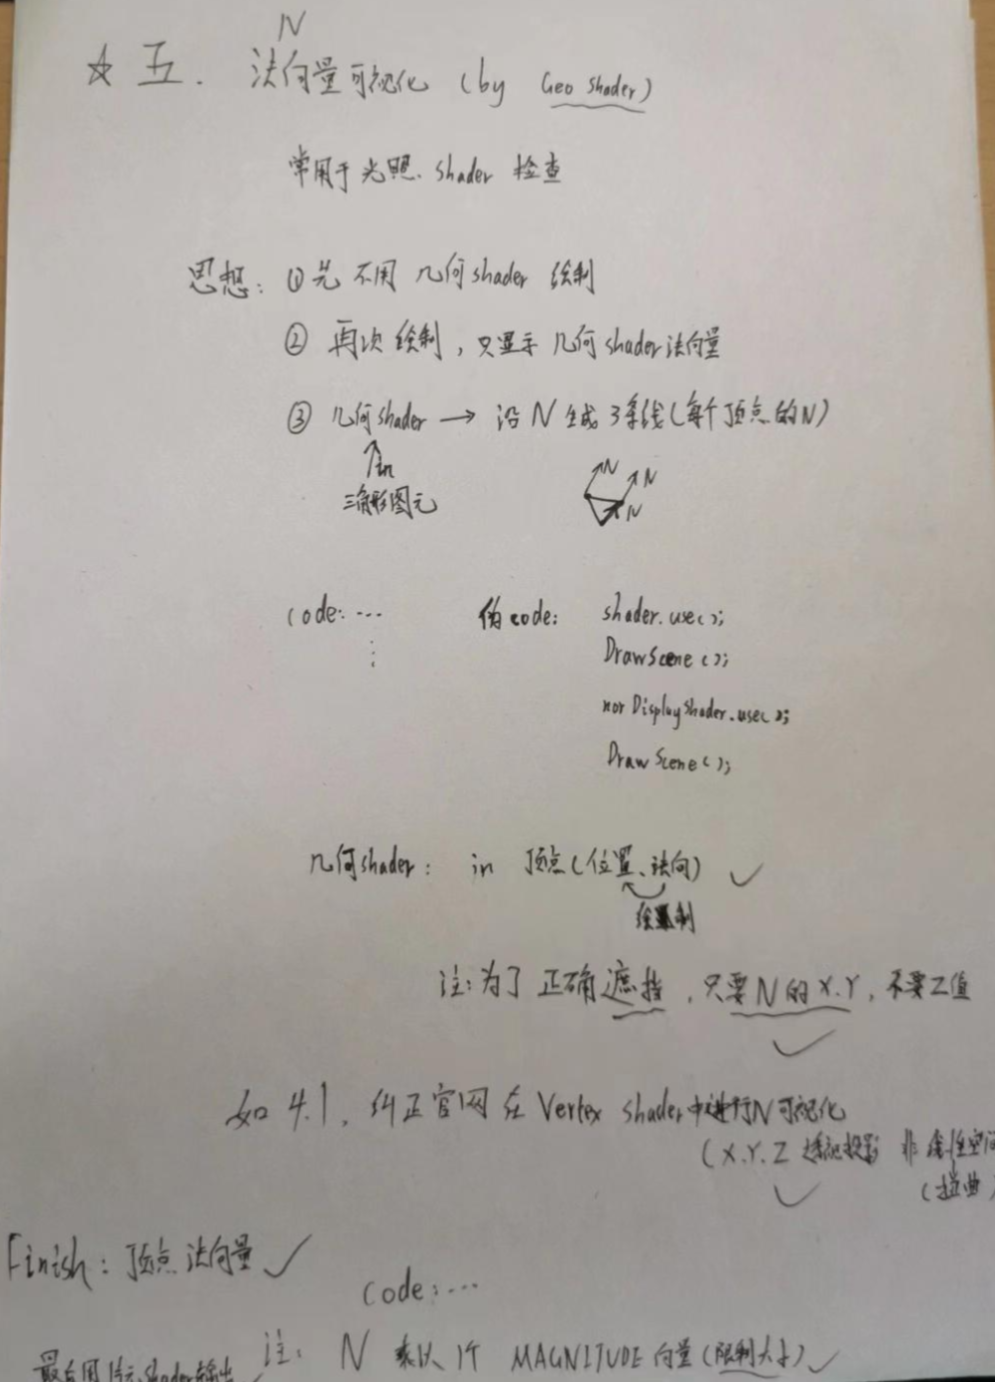 N
☆ 五. 法向量可视化 (by Geo Shader)
常用于光照. shader 检查
思想: ①先不用 几何shader 绘制
② 再次绘制, 只显示 几何shader法向量
③ 几何shader → 沿 N 生成 3条线(每个顶点的N)
↑in
三角形图元
N N N
code: ... 伪code: shader.use();
DrawScene();
norDisplayShader.use();
DrawScene();
几何shader: in 顶点(位置、法向) ✓
绘制
注: 为了正确遮挡, 只要N的X.Y, 不要Z值
✓
如4.1, 纠正官网在Vertex shader中进行N可视化
(X.Y.Z 透视投影 非线性空间
✓ (扭曲)
Finish: 顶点法向量 ✓
code: ...
注: N 乘以1个 MAGNITUDE 向量(限制大小) ✓
最后用片元shader输出